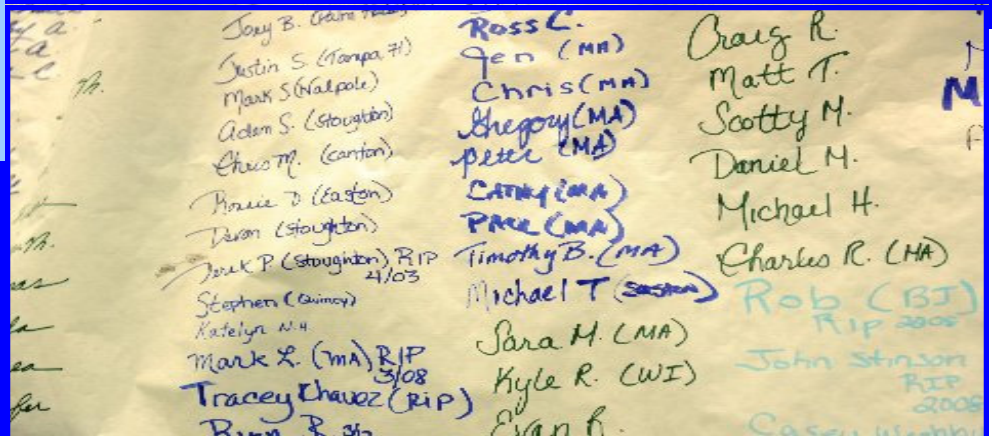 Joey B.
Justin S. (Tampa, 71)
Mark S (Walpole)
Adam S. (Stoughton)
Chris M. (canton)
D (Easton)
Devon (Stoughton)
Derek P (Stoughton) RIP
4/03
Stephen (Quincy)
Katelyn N.H.
Mark L. (MA) RIP
3/08
Tracey Chavez (RIP)
Ryan R.
Ross C.
Jen (MA)
Chris (MA)
Gregory (MA)
peter (MA)
CATHY (MA)
PAUL (MA)
Timothy B. (MA)
Michael T
Sara M. (MA)
Kyle R. (WI)
R.
Craig R.
Matt T.
Scotty M.
Daniel M.
Michael H.
Charles R. (MA)
Rob (BJ)
Rip 2005
John Stinson
RIP
2008
Casey
M